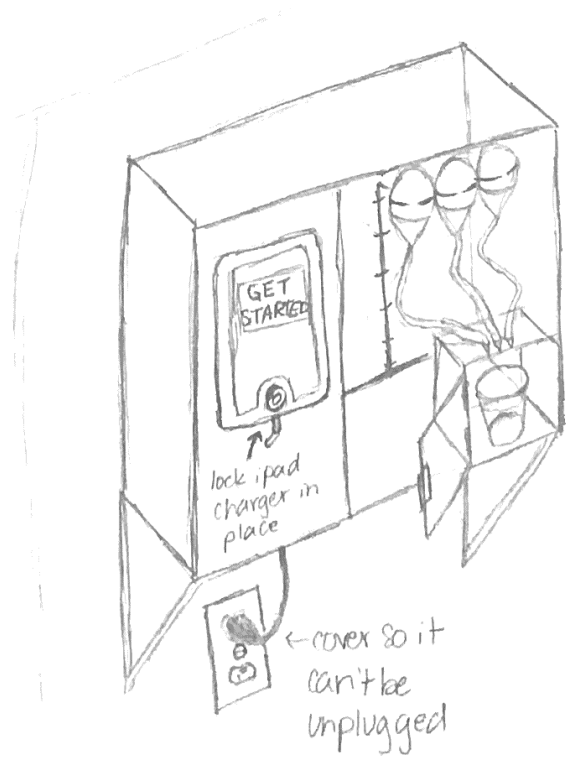 GET
STARTED
lock ipad
charger in
place
←cover so it
can't be
unplugged